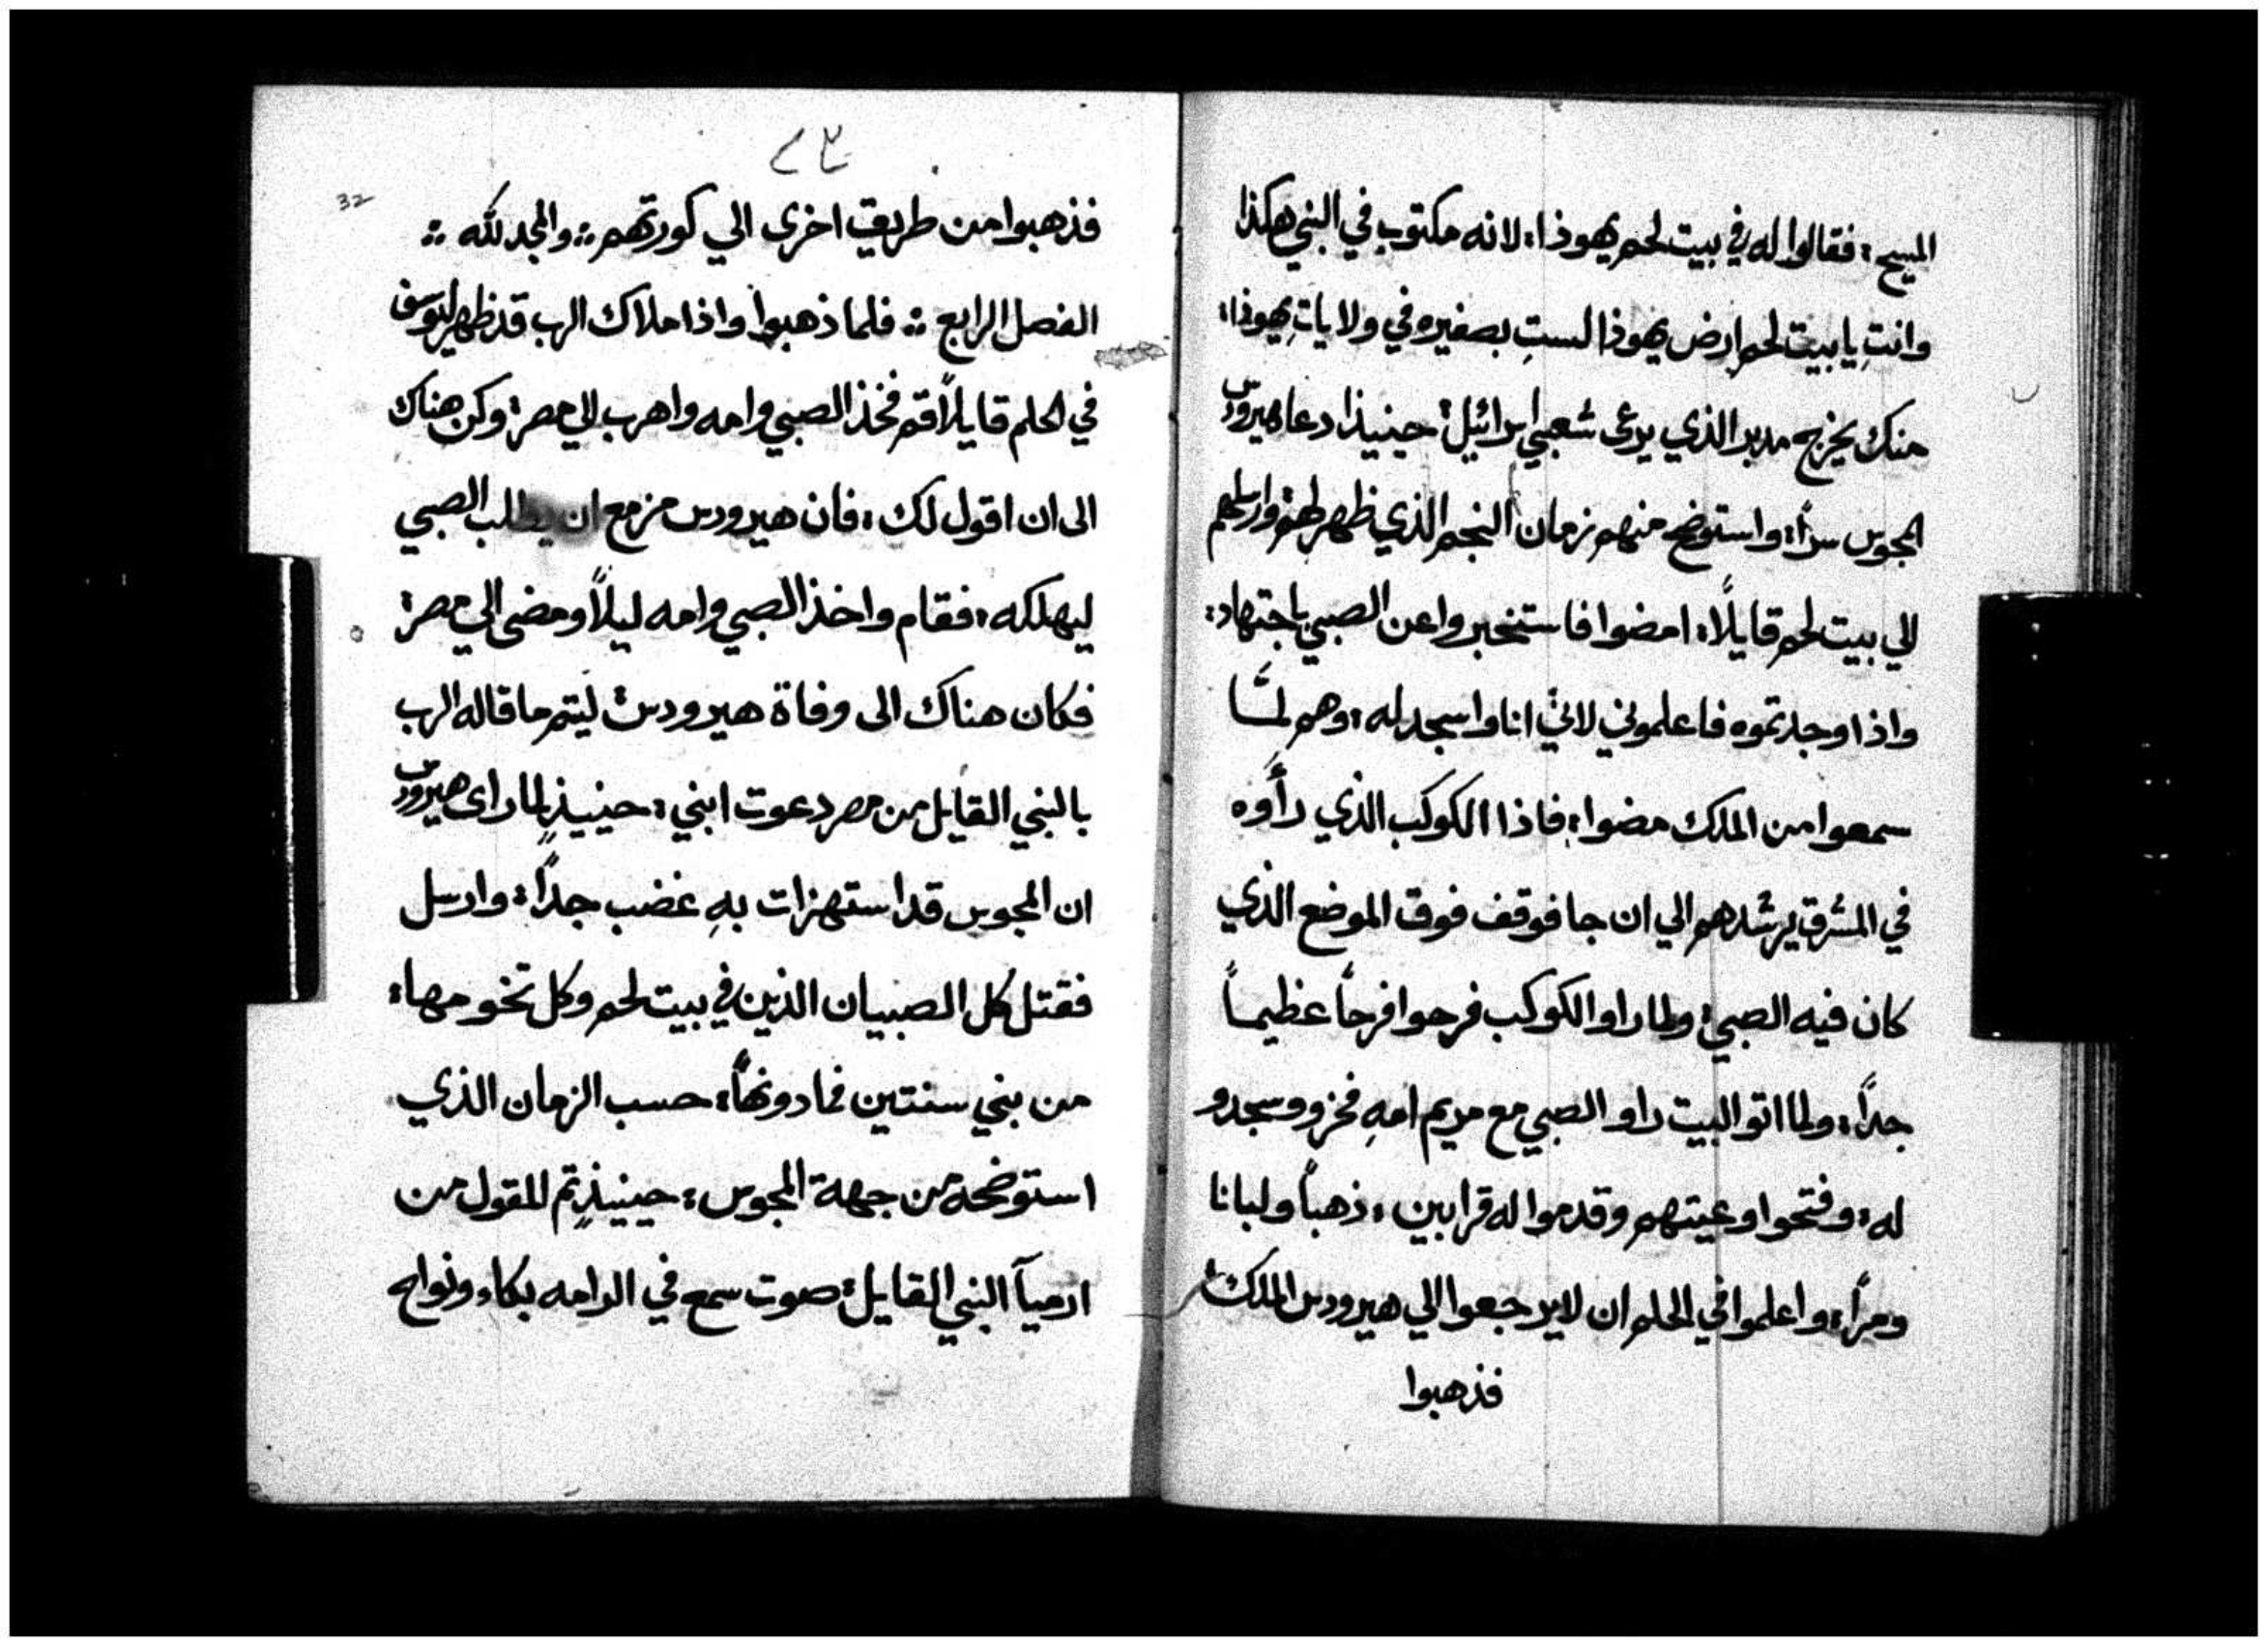 المسيح: فقالوا له في بيت لحم يهوذا: لانه مكتوب في النبي هكذا
وانتِ يا بيت لحم ارض يهوذا لستِ بصغيره في ولاياتِ يهوذا:
منك يخرج مدبر الذي يرعى شعبي اسرائيل: حينيذا دعا هيرودس
المجوس سراً: واستوضح منهم زمان النجم الذي ظهر لهم: وارسلهم
الي بيت لحم قايلاً: امضوا فاستخبروا عن الصبي باجتهاد:
واذا وجدتموه فاعلموني لاتي انا واسجد له: وهم لمَّا
سمعوا من الملك مضوا: فاذا الكوكب الذي رأَوه
في المشرق يرشدهم الي ان جا فوقف فوق الموضع الذي
كان فيه الصبي: ولما راو الكوكب فرحوا فرحاً عظيماً
جداً: ولما اتو البيت راو الصبي مع مريم امهِ فخرو وسجدو
له: وفتحوا وعيتهم وقدموا له قرابين: ذهباً ولبانا
ومراً: واعلموا في الحلم ان لا يرجعوا الي هيرودس الملك:
فذهبوا
٣٢
32
فذهبوا من طريق اخرى الي كورتهم: والمجد لله
الفصل الرابع: فلما ذهبوا واذا ملاك الرب قد ظهر ليوسف
في الحلم قايلاً قم فخذ الصبي وامه واهرب الي مصر: وكن هناك
الى ان اقول لك: فان هيرودس مزمع ان يطلب الصبي
ليهلكه: فقام واخذ الصبي وامه ليلاً ومضى الي مصر:
فكان هناك الى وفاة هيرودس: ليتم ما قاله الرب
بالنبي القايل من مصر دعوت ابني: حينيذٍ لما راى هيرودس
ان المجوس قد استهزات بهِ غضب جداً: وارسل
فقتل كل الصبيان الذين في بيت لحم وكل تخومها:
من بني سنتين فما دونها: حسب الزمان الذي
استوضحه من جهة المجوس: حينيذٍ تم المقول من
ارميآ النبي القايل: صوت سمع في الرامه بكاء ونواح